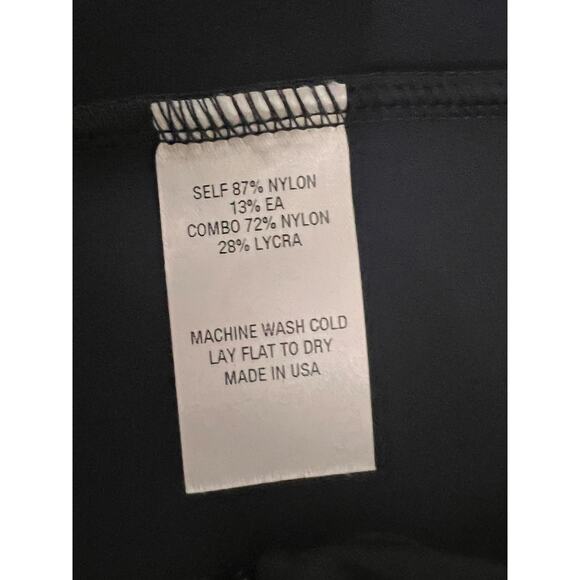 SELF 87% NYLON
13% EA
COMBO 72% NYLON
28% LYCRA
MACHINE WASH COLD
LAY FLAT TO DRY
MADE IN USA